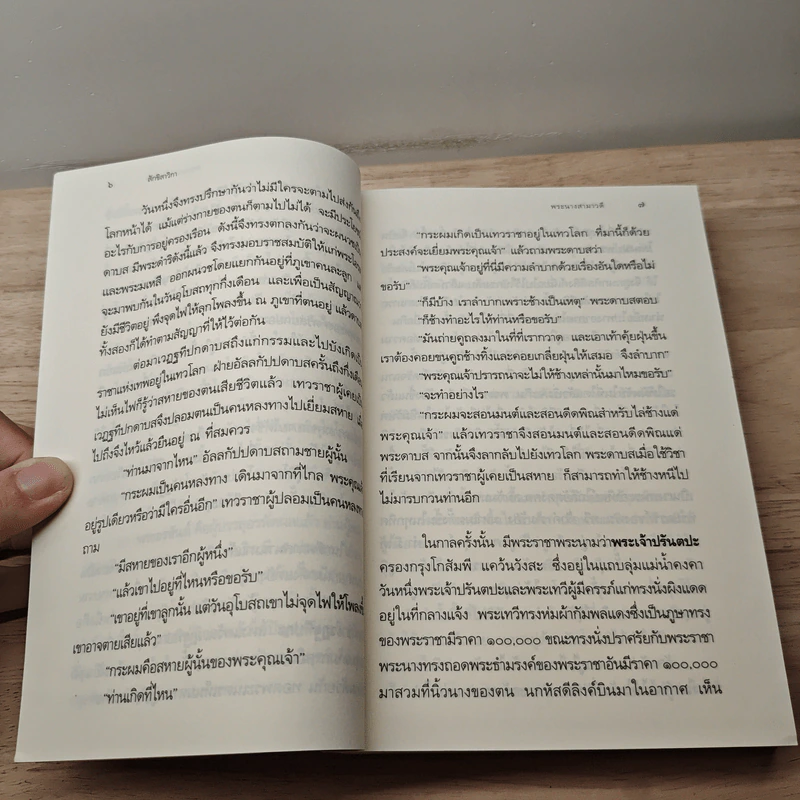 ๖
ศักชิสาริกา
วันหนึ่งจึงทรงปรึกษากันว่าไม่มีใครจะตามไปส่งกันถึง
โลกหน้าได้ แม้แต่ร่างกายของตนก็ตามไปไม่ได้ จะมีประโยชน์
อะไรกับการอยู่ครองเรือน ดังนี้จึงทรงตกลงกันว่าจะผนวชเป็น
ดาบส มีพระดำริดังนี้แล้ว จึงทรงมอบราชสมบัติให้แก่พระโอรส
และพระมเหสี ออกผนวชโดยแยกกันอยู่ที่ภูเขาคนละลูก
จะมาพบกันในวันอุโบสถทุกกึ่งเดือน และเพื่อเป็นสัญญาณว่า
ยังมีชีวิตอยู่ พึงจุดไฟให้ลุกโพลงขึ้น ณ ภูเขาที่ตนอยู่ แล้วดาบส
ทั้งสองก็ได้ทำตามสัญญาที่ให้ไว้ต่อกัน
ต่อมาเวฏฐทีปกดาบสถึงแก่กรรมและไปบังเกิดเป็น
ราชาแห่งเทพอยู่ในเทวโลก ฝ่ายอัลลกัปปดาบสครั้นถึงกึ่งเดือน
ไม่เห็นไฟก็รู้ว่าสหายของตนเสียชีวิตแล้ว เทวราชาผู้เคยเป็น
เวฏฐทีปกดาบสจึงปลอมตนเป็นคนหลงทางไปเยี่ยมสหาย
ไปถึงจึงไหว้แล้วยืนอยู่ ณ ที่สมควร
“ท่านมาจากไหน” อัลลกัปปดาบสถามชายผู้นั้น
“กระผมเป็นคนหลงทาง เดินมาจากที่ไกล พระคุณเจ้า
อยู่รูปเดียวหรือว่ามีใครอื่นอีก” เทวราชาผู้ปลอมเป็นคนหลงทาง
ถาม
“มีสหายของเราอีกผู้หนึ่ง”
“แล้วเขาไปอยู่ที่ไหนหรือขอรับ”
“เขาอยู่ที่เขาลูกนั้น แต่วันอุโบสถเขาไม่จุดไฟให้โพลงขึ้น
เขาอาจตายเสียแล้ว”
“กระผมคือสหายผู้นั้นของพระคุณเจ้า”
“ท่านเกิดที่ไหน”
พระนางสามาวดี
๗
“กระผมเกิดเป็นเทวราชาอยู่ในเทวโลก ที่มานี้ก็ด้วย
ประสงค์จะเยี่ยมพระคุณเจ้า” แล้วถามพระดาบสว่า
“พระคุณเจ้าอยู่ที่นี่มีความลำบากด้วยเรื่องอันใดหรือไม่
ขอรับ”
“ก็มีบ้าง เราลำบากเพราะช้างเป็นเหตุ” พระดาบสตอบ
“ก็ช้างทำอะไรให้ท่านหรือขอรับ”
“มันถ่ายคูถลงมาในที่ที่เรากวาด และเอาเท้าคุ้ยฝุ่นขึ้น
เราต้องคอยขนคูถช้างทิ้งและคอยเกลี่ยฝุ่นให้เสมอ จึงลำบาก”
“พระคุณเจ้าปรารถนาจะไม่ให้ช้างเหล่านั้นมาไหมขอรับ”
“จะทำอย่างไร”
“กระผมจะสอนมนต์และสอนดีดพิณสำหรับไล่ช้างแด่
พระคุณเจ้า” แล้วเทวราชาจึงสอนมนต์และสอนดีดพิณแด่
พระดาบส จากนั้นจึงลากลับไปยังเทวโลก พระดาบสเมื่อใช้วิชา
ที่เรียนจากเทวราชาผู้เคยเป็นสหาย ก็สามารถทำให้ช้างหนีไป
ไม่มารบกวนท่านอีก
ในกาลครั้งนั้น มีพระราชาพระนามว่าพระเจ้าปรันตปะ
ครองกรุงโกสัมพี แคว้นวังสะ ซึ่งอยู่ในแถบลุ่มแม่น้ำคงคา
วันหนึ่งพระเจ้าปรันตปะและพระเทวีผู้มีครรภ์แก่ทรงนั่งผิงแดด
อยู่ในที่กลางแจ้ง พระเทวีทรงห่มผ้ากัมพลแดงซึ่งเป็นภูษาทรง
ของพระราชามีราคา ๑๐๐,๐๐๐ ขณะทรงนั่งปราศรัยกับพระราชา
พระนางทรงถอดพระธำมรงค์ของพระราชาอันมีราคา ๑๐๐,๐๐๐
มาสวมที่นิ้วนางของตน นกหัสดีลิงค์บินมาในอากาศ เห็น